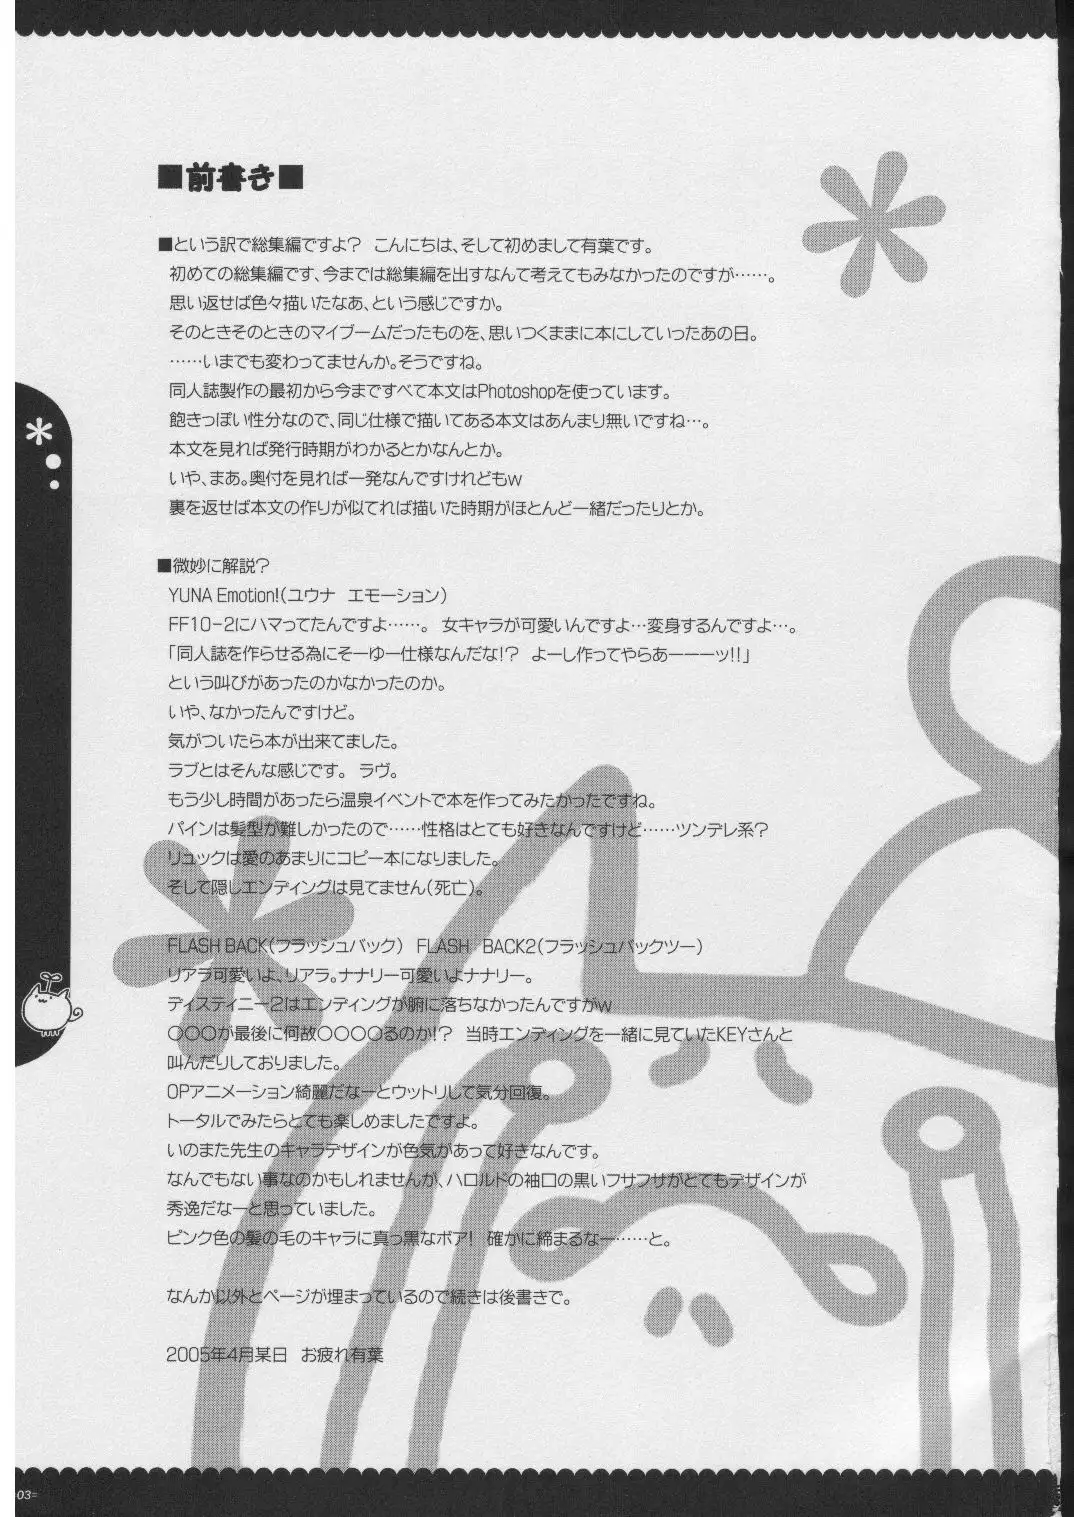 ■前書き■
■という訳で総集編ですよ? こんにちは、そして初めまして有葉です。
初めての総集編です、今までは総集編を出すなんて考えてもみなかったのですが……。
思い返せば色々描いたなあ、という感じですか。
そのときそのときのマイブームだったものを、思いつくままに本にしていったあの日。
……いまでも変わってませんか。そうですね。
同人誌製作の最初から今まですべて本文はPhotoshopを使っています。
飽きっぽい性分なので、同じ仕様で描いてある本文はあんまり無いですね…。
本文を見れば発行時期がわかるとかなんとか。
いや、まあ。奥付を見れば一発なんですけれどもw
裏を返せば本文の作りが似てれば描いた時期がほとんど一緒だったりとか。
■微妙に解説?
YUNA Emotion!(ユウナ エモーション)
FF10-2にハマってたんですよ……。 女キャラが可愛いんですよ…変身するんですよ…。
「同人誌を作らせる為にそーゆー仕様なんだな!? よーし作ってやらあーーーッ!!」
という叫びがあったのかなかったのか。
いや、なかったんですけど。
気がついたら本が出来てました。
ラブとはそんな感じです。 ラヴ。
もう少し時間があったら温泉イベントで本を作ってみたかったですね。
パインは髪型が難しかったので……性格はとても好きなんですけど……ツンデレ系?
リュックは愛のあまりにコピー本になりました。
そして隠しエンディングは見てません(死亡)。
FLASH BACK(フラッシュバック) FLASH BACK2(フラッシュバックツー)
リアラ可愛いよ、リアラ。ナナリー可愛いよナナリー。
ディスティニー2はエンディングが腑に落ちなかったんですがw
○○○が最後に何故○○○○るのか!? 当時エンディングを一緒に見ていたKEYさんと
叫んだりしておりました。
OPアニメーション綺麗だなーとウットリして気分回復。
トータルでみたらとても楽しめましたですよ。
いのまた先生のキャラデザインが色気があって好きなんです。
なんでもない事なのかもしれませんが、ハロルドの袖口の黒いフサフサがとてもデザインが
秀逸だなーと思っていました。
ピンク色の髪の毛のキャラに真っ黒なボア! 確かに締まるなー……と。
なんか以外とページが埋まっているので続きは後書きで。
2005年4月某日 お疲れ有葉
03=